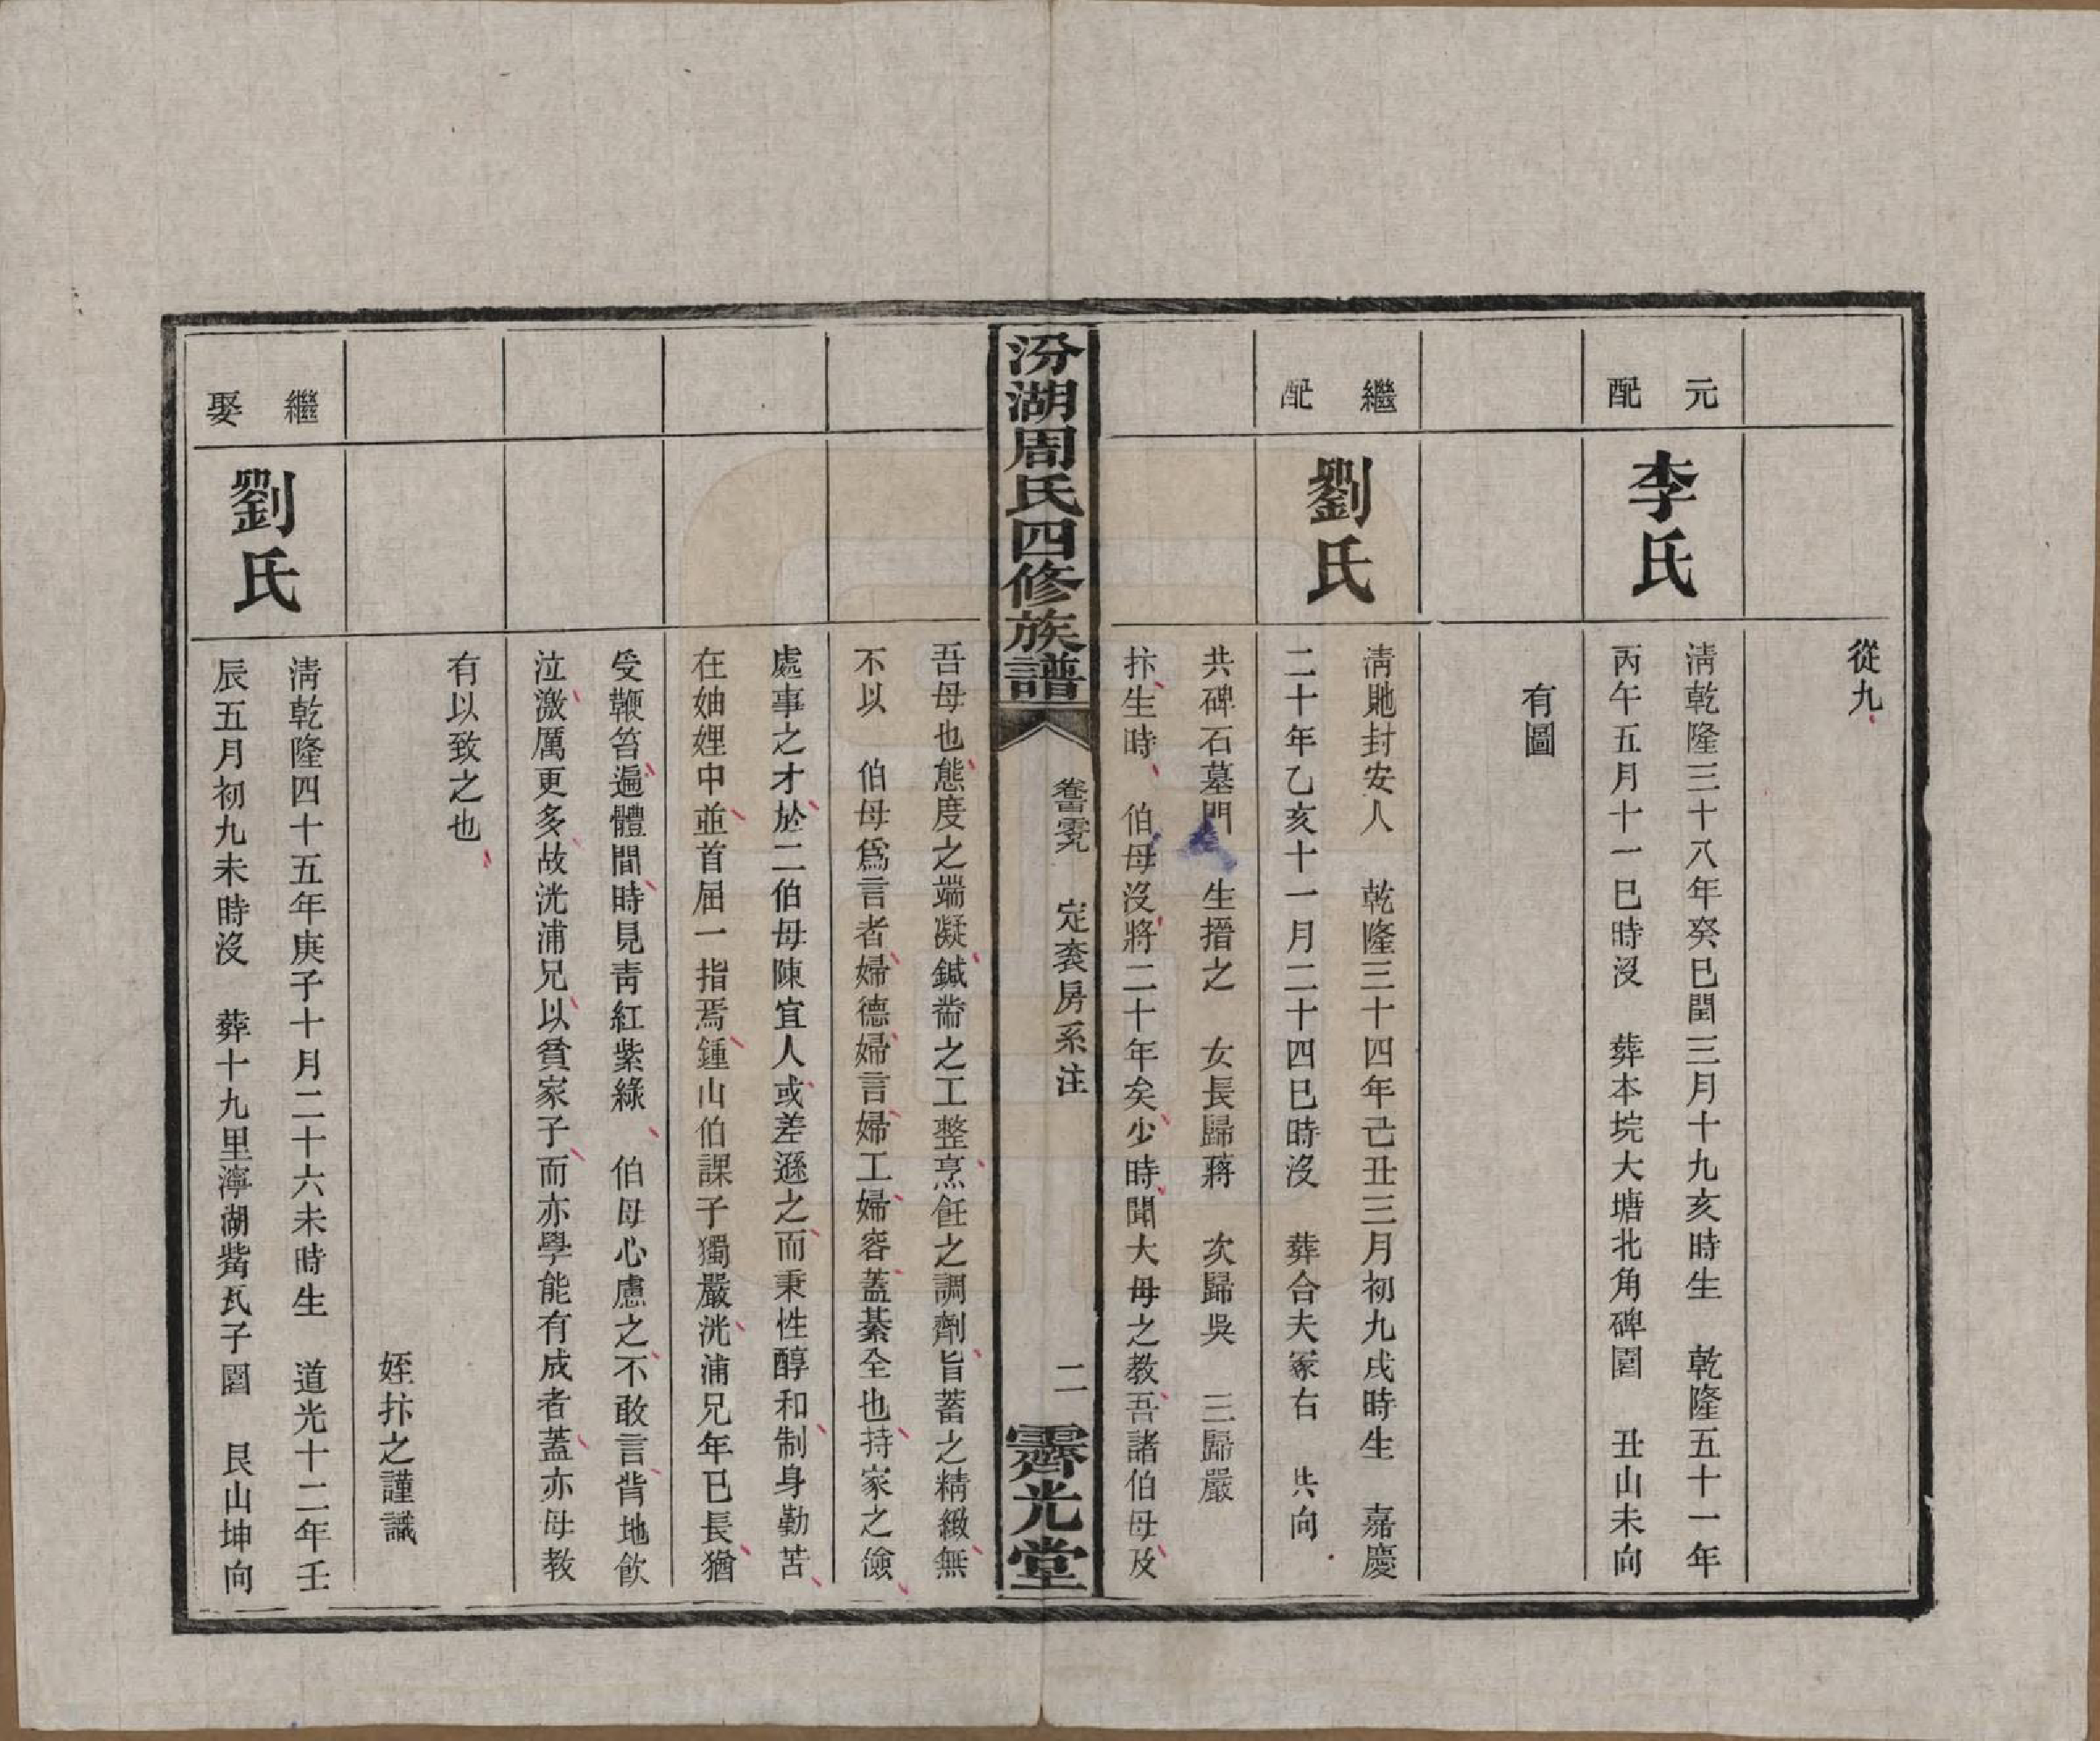 從九
元配
李氏
清乾隆三十八年癸巳閏三月十九亥時生　乾隆五十一年
丙午五月十一巳時沒　葬本垸大塘北角碑圍　丑山未向
有圖
繼配
劉氏
清貤封安人　乾隆三十四年己丑三月初九戌時生　嘉慶
二十年乙亥十一月二十四巳時沒　葬合夫冢右　共向
共碑石墓門　生搢之　女長歸蔣　次歸吳　三歸嚴
抃生時　伯母沒將二十年矣少時聞大母之教吾諸伯母及
汾湖周氏四修族譜
卷　定袞房系注
二
霽光堂
吾母也態度之端凝鍼黹之工整烹飪之調劑旨蓄之精緻無
不以　伯母爲言者婦德婦言婦工婦容蓋綦全也持家之儉
處事之才於二伯母陳宜人或差遜之而秉性醇和制身勤苦
在妯娌中並首屈一指焉鍾山伯課子獨嚴洸浦兄年已長猶
受鞭笞遍體間時見靑紅紫綠　伯母心慮之不敢言背地飮
泣激厲更多故洸浦兄以貧家子而亦學能有成者蓋亦母教
有以致之也
姪抃之謹識
繼娶
劉氏
清乾隆四十五年庚子十月二十六未時生　道光十二年壬
辰五月初九未時沒　葬十九里濘湖觜瓦子園　艮山坤向